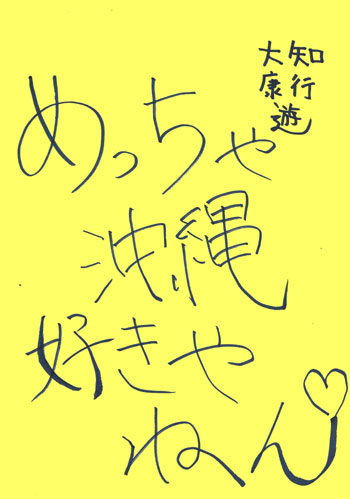 知行遊
大康
めっちゃ
沖縄
好きや
ねん♡